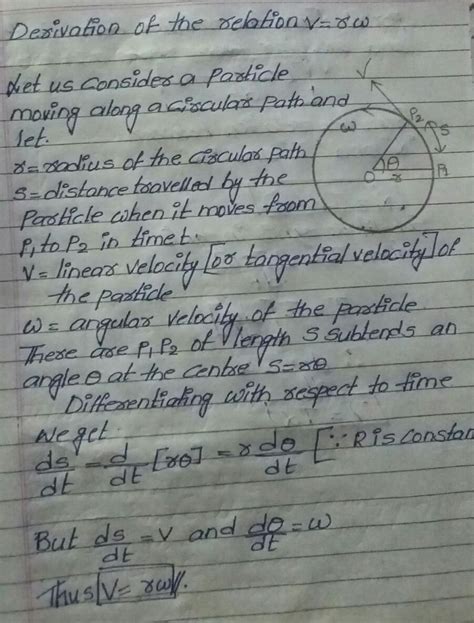 Derivation of the relation V = rω
Let us Consider a Particle
moving along a circular path and
let.
r = radius of the circular path
S = distance travelled by the
Particle when it moves from
P₁ to P₂ in time t.
V = linear velocity [or tangential velocity] of
the particle
ω = angular velocity of the particle
There are P₁P₂ of length S subtends an
angle θ at the centre S = rθ
Differentiating with respect to time
we get
ds/dt = d/dt [rθ] = r dθ/dt [∵ R is constan
But ds/dt = V and dθ/dt = ω
Thus V = rω //.
V
P₂
S
ω
θ
O
r
P₁